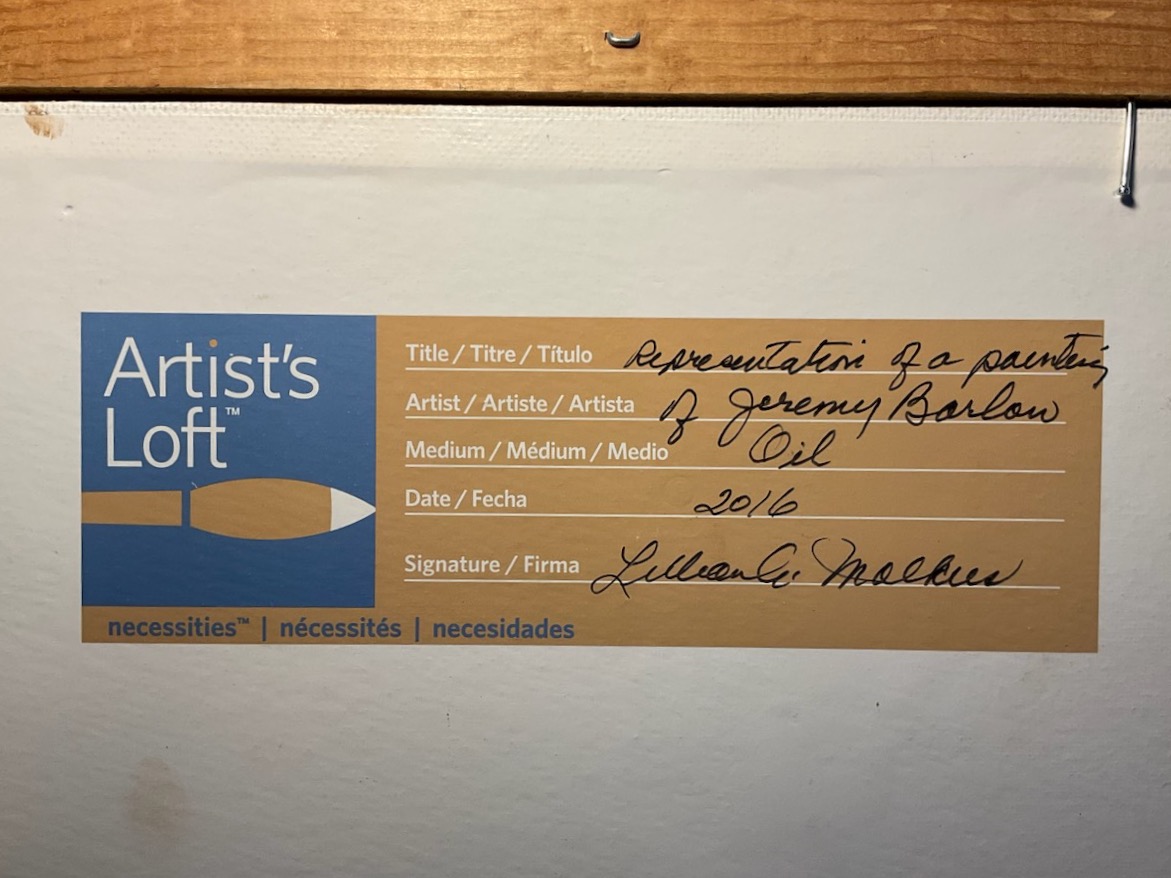 Artist's
Loft™
Title / Titre / Título Representation of a painting
Artist / Artiste / Artista of Jeremy Barlow
Medium / Médium / Medio Oil
Date / Fecha 2016
Signature / Firma Lillian
necessities™ | nécessités | necesidades